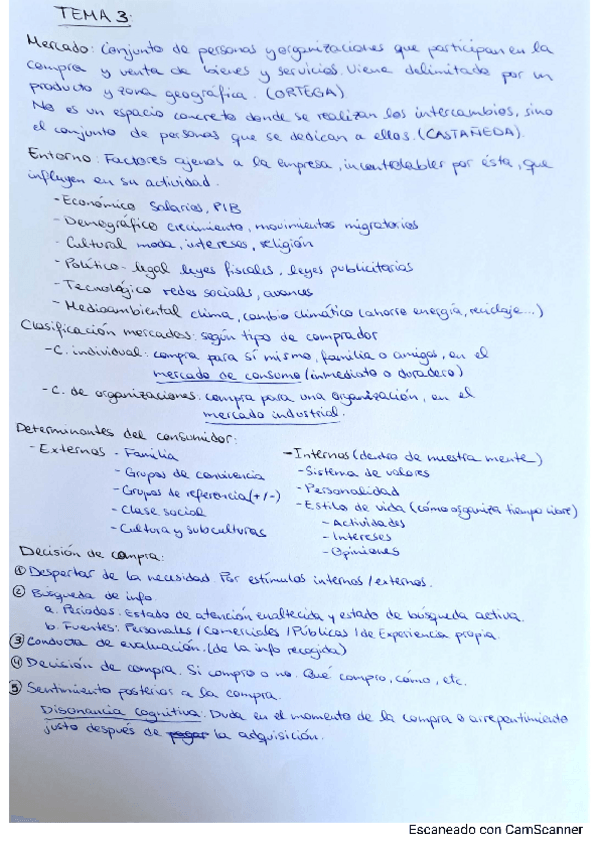 TEMA 3:
Mercado: Conjunto de personas y organizaciones que participan en la
compra y venta de bienes y servicios. Viene delimitado por un
producto y zona geográfica. (ORTEGA)
No es un espacio concreto donde se realizan los intercambios, sino
el conjunto de personas que se dedican a ellos. (CASTAÑEDA).
Entorno: Factores ajenos a la empresa, incontrolables por ésta, que
influyen en su actividad.
- Económico salarios, PIB
- Demográfico crecimiento, movimientos migratorios
- Cultural moda, intereses, religión
- Político-legal leyes fiscales, leyes publicitarias
- Tecnológico redes sociales, avances
- Medioambiental clima, cambio climático (ahorro energía, reciclaje...)
Clasificación mercados: según tipo de comprador
- C. individual: compra para sí mismo, familia o amigos, en el
mercado de consumo (inmediato o duradero)
- C. de organizaciones: compra para una organización, en el
mercado industrial.
Determinantes del consumidor:
- Externos - Familia
- Grupos de convivencia
- Grupos de referencia (+/-)
- Clase social
- Cultura y subculturas
- Internos (dentro de nuestra mente)
- Sistema de valores
- Personalidad
- Estilo de vida (cómo organiza tiempo libre)
- Actividades
- Intereses
- Opiniones
Decisión de compra:
① Despertar de la necesidad. Por estímulos internos/externos.
② Búsqueda de info.
a. Periodos: Estado de atención enaltecida y estado de búsqueda activa.
b. Fuentes: Personales / Comerciales / Públicas / de Experiencia propia.
③ Conducta de evaluación. (de la info recogida)
④ Decisión de compra. Si compro o no. Qué compro, cómo, etc.
⑤ Sentimiento posterior a la compra.
Disonancia cognitiva: Duda en el momento de la compra o arrepentimiento
justo después de pagar la adquisición.
Escaneado con CamScanner